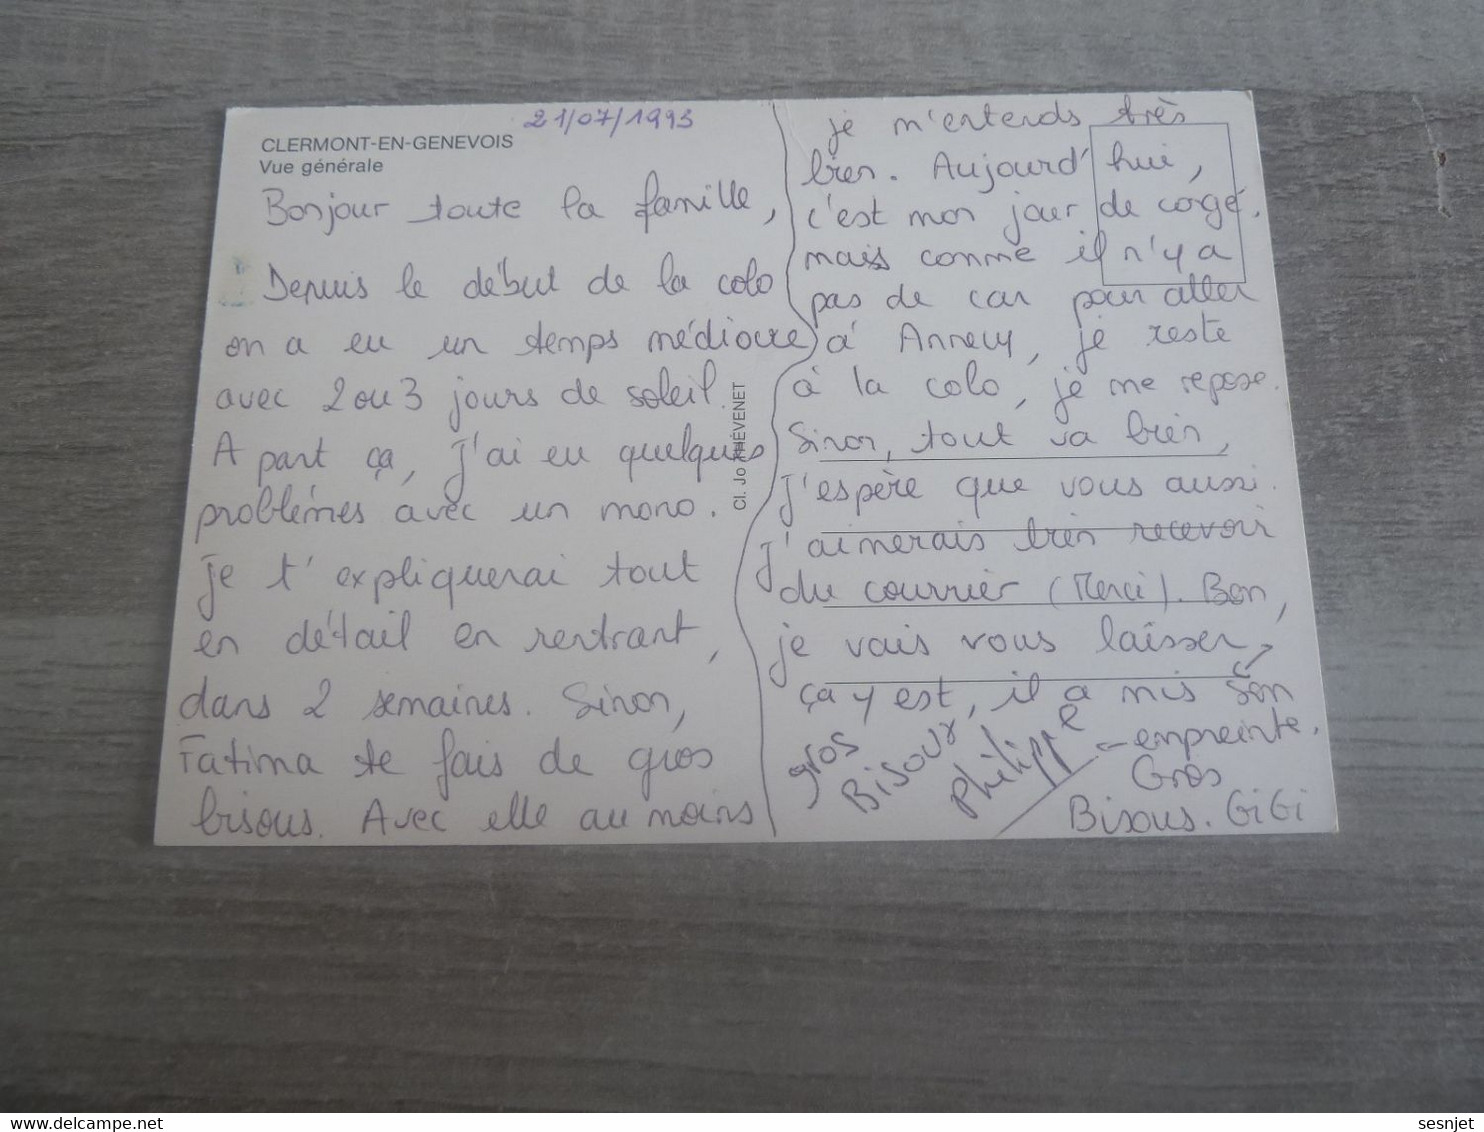 CLERMONT-EN-GENEVOIS
Vue générale
21/07/1993
Bonjour toute la famille,
Depuis le début de la colo
on a eu un temps médiocre
avec 2 ou 3 jours de soleil.
A part ça, j'ai eu quelques
problèmes avec un mono.
je t'expliquerai tout
en détail en rentrant,
dans 2 semaines. Sinon,
Fatima te fais de gros
bisous. Avec elle au moins
Cl. Jo THÉVENET
je m'entends très
bien. Aujourd'hui,
c'est mon jour de congé.
mais comme il n'y a
pas de car pour aller
à Annecy, je reste
à la colo, je me repose.
Sinon, tout va bien,
j'espère que vous aussi.
J'aimerais bien recevoir
du courrier (Merci). Bon,
je vais vous laisser,
ça y est, il a mis son
empreinte.
gros
Bisoux
Philippe
Gros
Bisous. GiGi
sesnjet